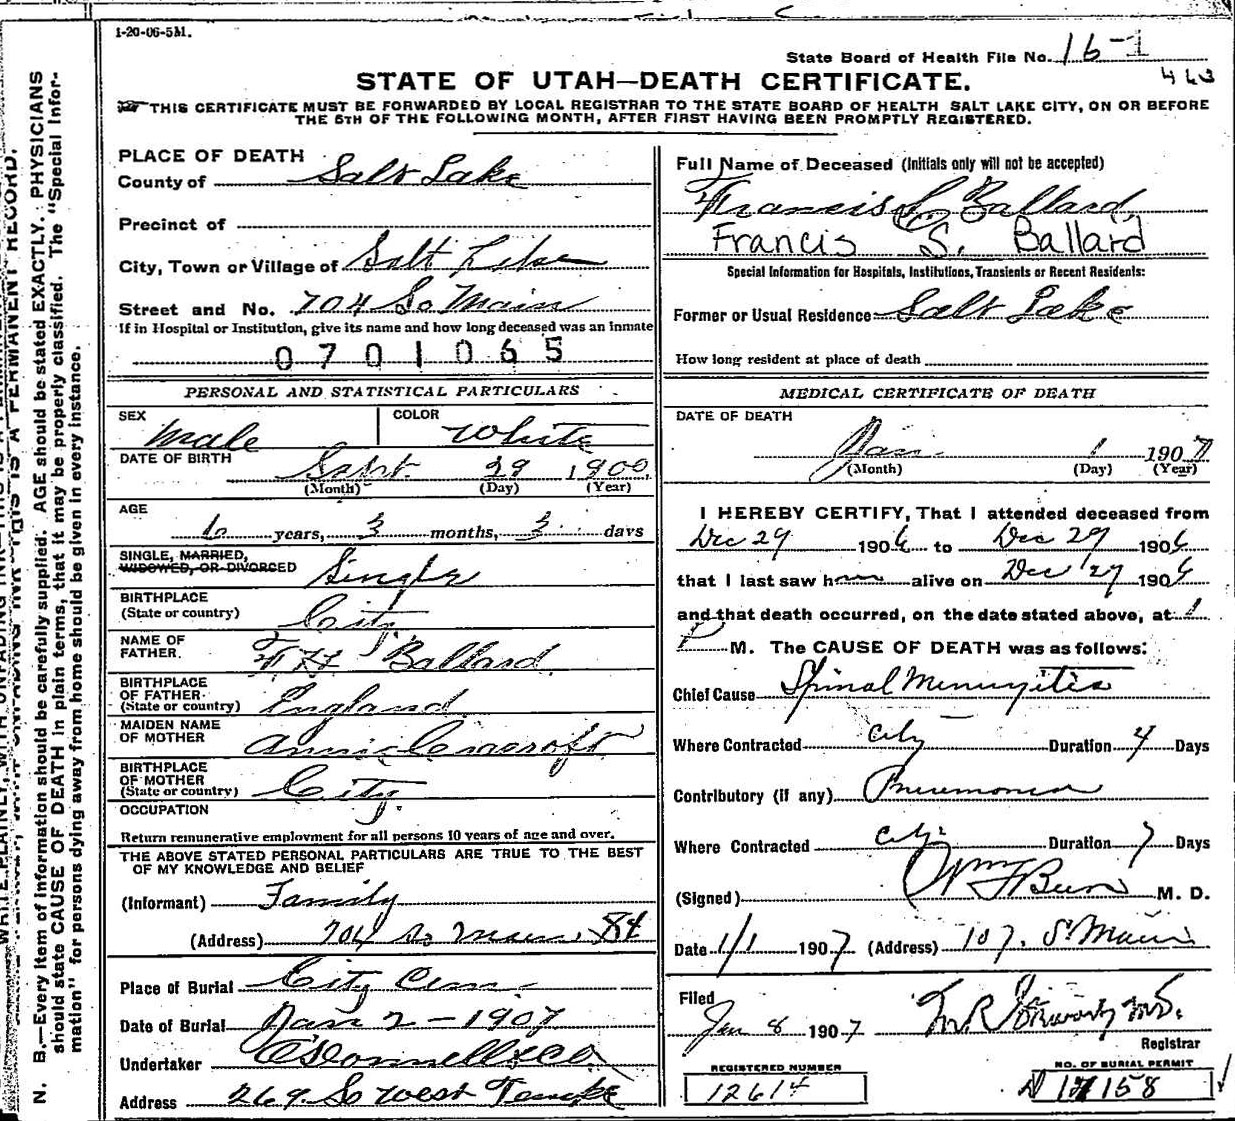 1-20-06-5M.
State Board of Health File No. 16-1
463
STATE OF UTAH—DEATH CERTIFICATE.
THIS CERTIFICATE MUST BE FORWARDED BY LOCAL REGISTRAR TO THE STATE BOARD OF HEALTH SALT LAKE CITY, ON OR BEFORE
THE 5TH OF THE FOLLOWING MONTH, AFTER FIRST HAVING BEEN PROMPTLY REGISTERED.
PLACE OF DEATH
County of Salt Lake
Precinct of
City, Town or Village of Salt Lake
Street and No. 704 So Main
If in Hospital or Institution, give its name and how long deceased was an inmate
0701065
Full Name of Deceased (Initials only will not be accepted)
Francis S. Ballard
Francis S. Ballard
Special Information for Hospitals, Institutions, Transients or Recent Residents:
Former or Usual Residence Salt Lake
How long resident at place of death
PERSONAL AND STATISTICAL PARTICULARS
SEX Male COLOR White
DATE OF BIRTH Sept. 29 1900
(Month) (Day) (Year)
AGE 6 years, 3 months, 3 days
SINGLE, MARRIED,
WIDOWED, OR DIVORCED Single
BIRTHPLACE
(State or country) City
NAME OF
FATHER Ballard
BIRTHPLACE
OF FATHER
(State or country) England
MAIDEN NAME
OF MOTHER Annie
BIRTHPLACE
OF MOTHER
(State or country) City
OCCUPATION
Return remunerative employment for all persons 10 years of age and over.
THE ABOVE STATED PERSONAL PARTICULARS ARE TRUE TO THE BEST
OF MY KNOWLEDGE AND BELIEF
(Informant) Family
(Address) 704 So Main St
Place of Burial City Cem
Date of Burial Jan 2-1907
Undertaker O'Donnell & Co
Address 269 So West Temple
MEDICAL CERTIFICATE OF DEATH
DATE OF DEATH
Jan. 1 1907
(Month) (Day) (Year)
I HEREBY CERTIFY, That I attended deceased from
Dec 29 1906 to Dec 29 1906
that I last saw him alive on Dec 29 1906
and that death occurred, on the date stated above, at 1
P M. The CAUSE OF DEATH was as follows:
Chief Cause Spinal Meningitis
Where Contracted City Duration 4 Days
Contributory (if any) Pneumonia
Where Contracted City Duration 7 Days
(Signed) Wm F Beer M. D.
Date 1/1 1907 (Address) 107 S. Main
Filed
Jan 8 1907 M.D.
Registrar
REGISTERED NUMBER
12614
NO. OF BURIAL PERMIT
158
N. B.—Every item of information should be carefully supplied. AGE should be stated EXACTLY. PHYSICIANS
should state CAUSE OF DEATH in plain terms, that it may be properly classified. The "Special Infor-
mation" for persons dying away from home should be given in every instance.